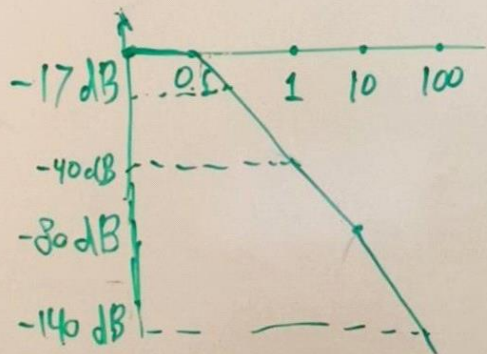 -17 dB
0.1 1 10 100
-40 dB
-80 dB
-140 dB